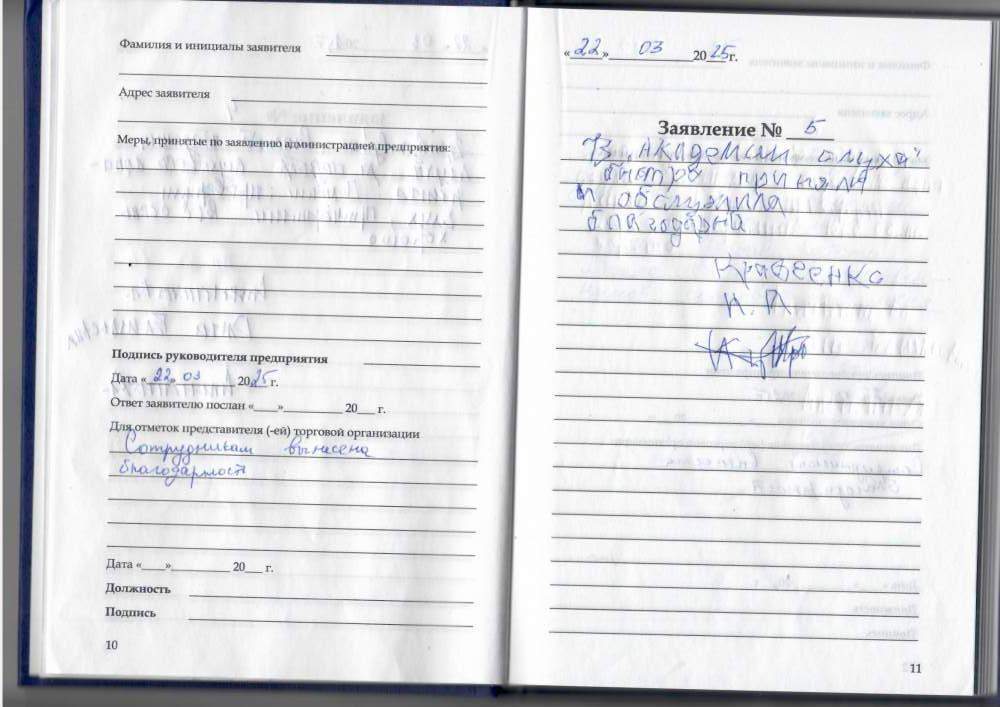 Фамилия и инициалы заявителя
Адрес заявителя
Меры, принятые по заявлению администрацией предприятия:
Подпись руководителя предприятия
Дата «22» 03 2025 г.
Ответ заявителю послан «___»__________ 20___ г.
Для отметок представителя (-ей) торговой организации
Сотрудникам вынесена
благодарност
Дата «___»__________ 20___ г.
Должность
Подпись
10
«22» 03 2025 г.
Заявление № 5
В „Академии слуха"
быстро приняли
и обслужила
благодарна
Кравеенко
Н. П
11